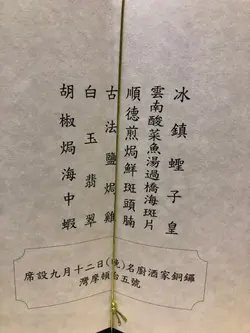 冰鎮蟶子皇
雲南酸菜魚湯過橋海斑片
順德煎焗鮮斑頭腩
古法鹽焗雞
白玉翡翠
胡椒焗海中蝦
席設九月十二日(晚)名廚酒家銅鑼
灣摩頓台五號